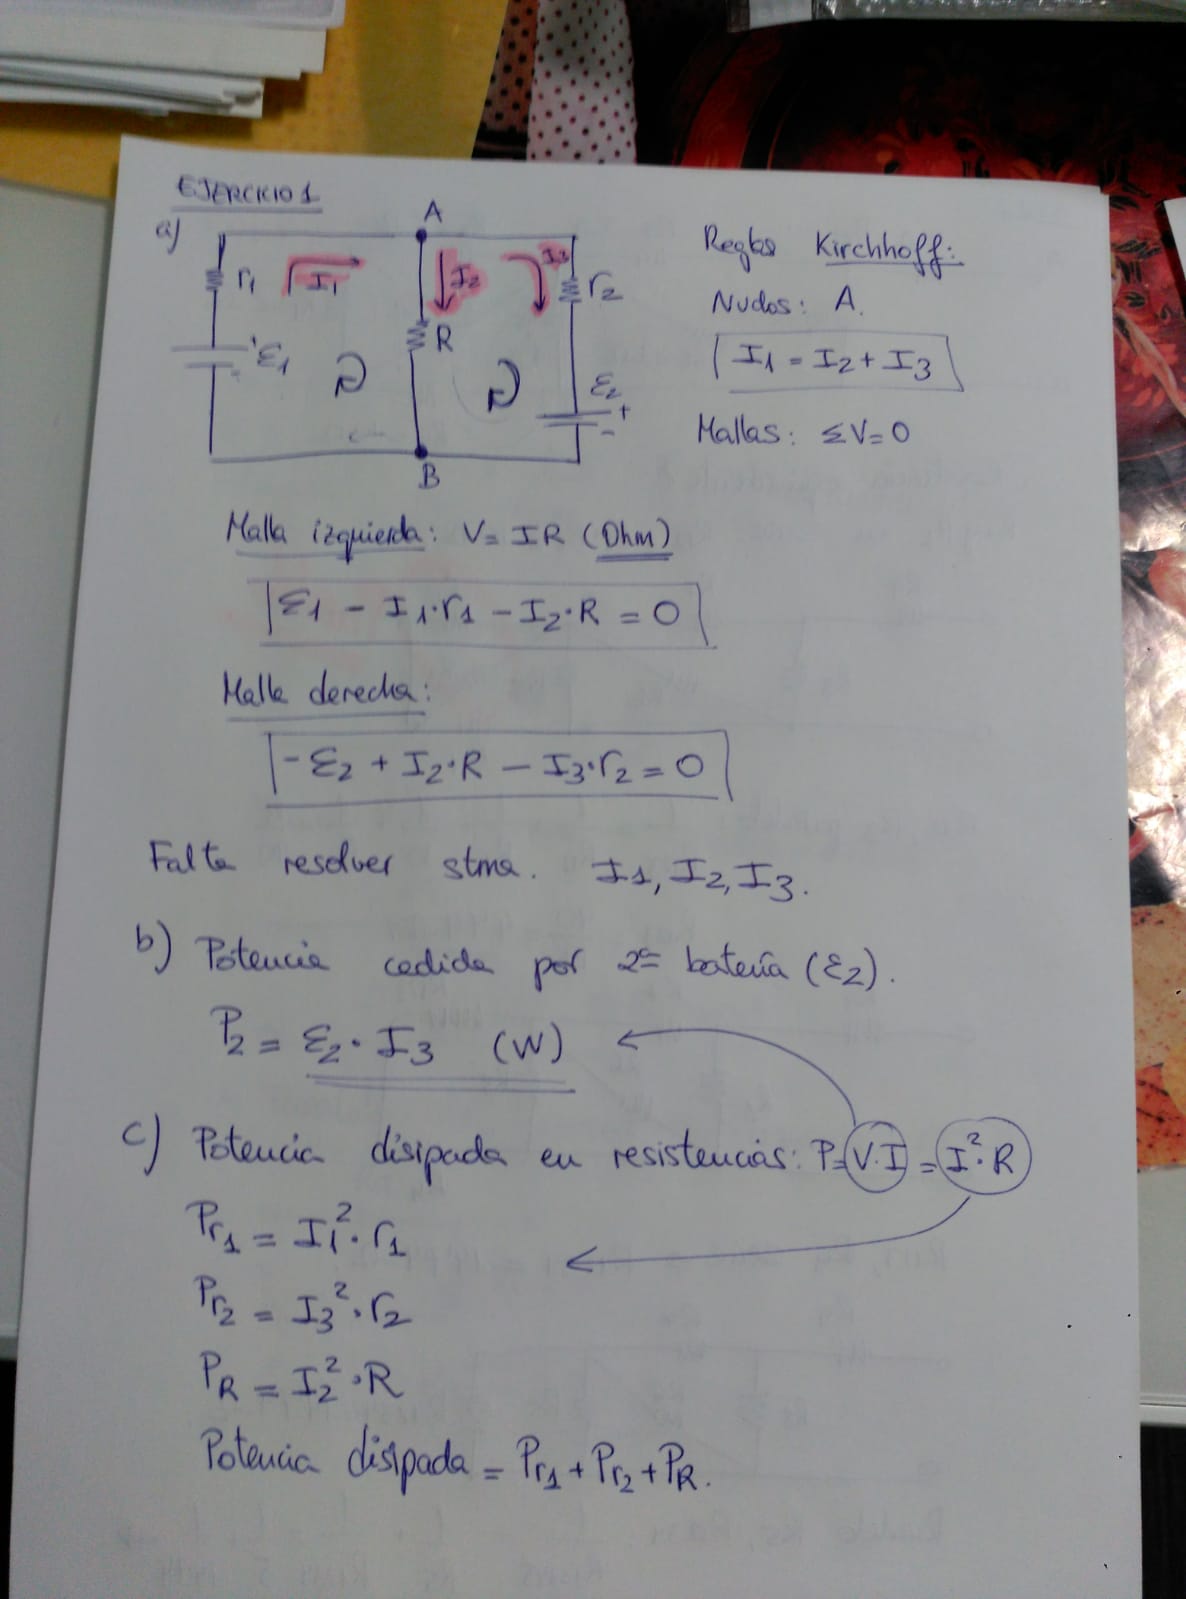 EJERCICIO 1
a)
A
r1
I1
I2
I3
r2
Reglas Kirchhoff:
Nudos: A.
I1 = I2 + I3
Mallas: ΣV=0
ε1
R
ε2
+
-
B
Malla izquierda: V= IR (Ohm)
ε1 - I1·r1 - I2·R = 0
Malla derecha:
-ε2 + I2·R - I3·r2 = 0
Falta resolver stma. I1, I2, I3.
b) Potencia cedida por 2ª batería (ε2).
P2 = ε2· I3 (W)
c) Potencia disipada en resistencias: P=V·I = I²·R
Pr1 = I1²·r1
Pr2 = I3²·r2
PR = I2²·R
Potencia disipada = Pr1 + Pr2 + PR.